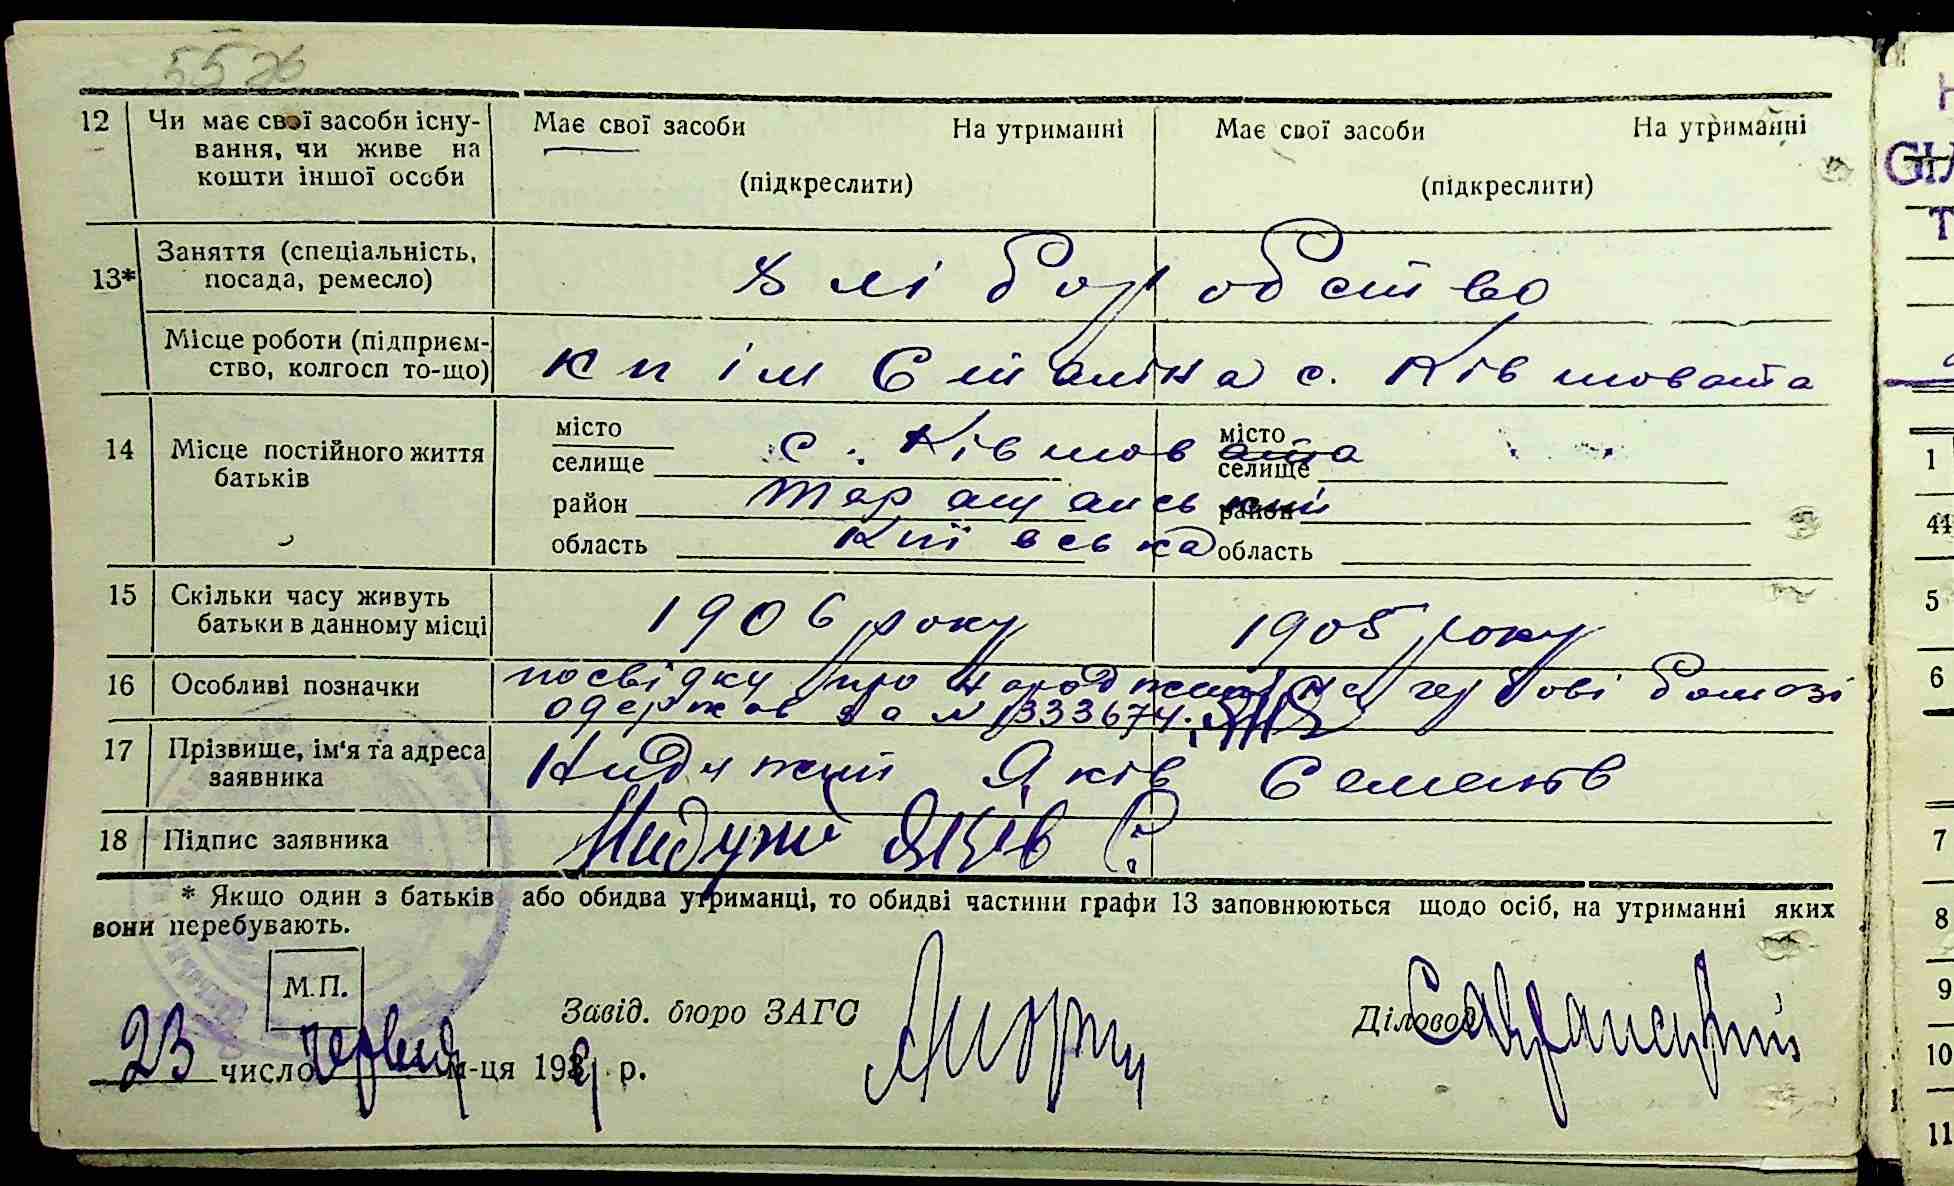 5526
12 Чи має свої засоби існу- Має свої засоби На утриманні Має свої засоби На утриманні
вання, чи живе на
кошти іншої особи (підкреслити) (підкреслити)
13* Заняття (спеціальність, хліборобство
посада, ремесло)
Місце роботи (підприєм- кп ім Сталіна с. Ківшовата
ство, колгосп то-що)
14 Місце постійного життя місто с. Ківшовата місто
батьків селище селище
район Таращанський район
область Київська область
15 Скільки часу живуть 1906 року 1905 року
батьки в данному місці
16 Особливі позначки посвідку про народження на гербові бомазі
одержав за № 333674.
17 Прізвище, ім'я та адреса Нидужий Яків Семенов
заявника
18 Підпис заявника Нидужий Яків С.
* Якщо один з батьків або обидва утриманці, то обидві частини графи 13 заповнюються щодо осіб, на утриманні яких
вони перебувають.
М.П.
Завід. бюро ЗАГС Діловод
23 число червня м-ця 193 р.
1
44
5
6
7
8
9
10
11